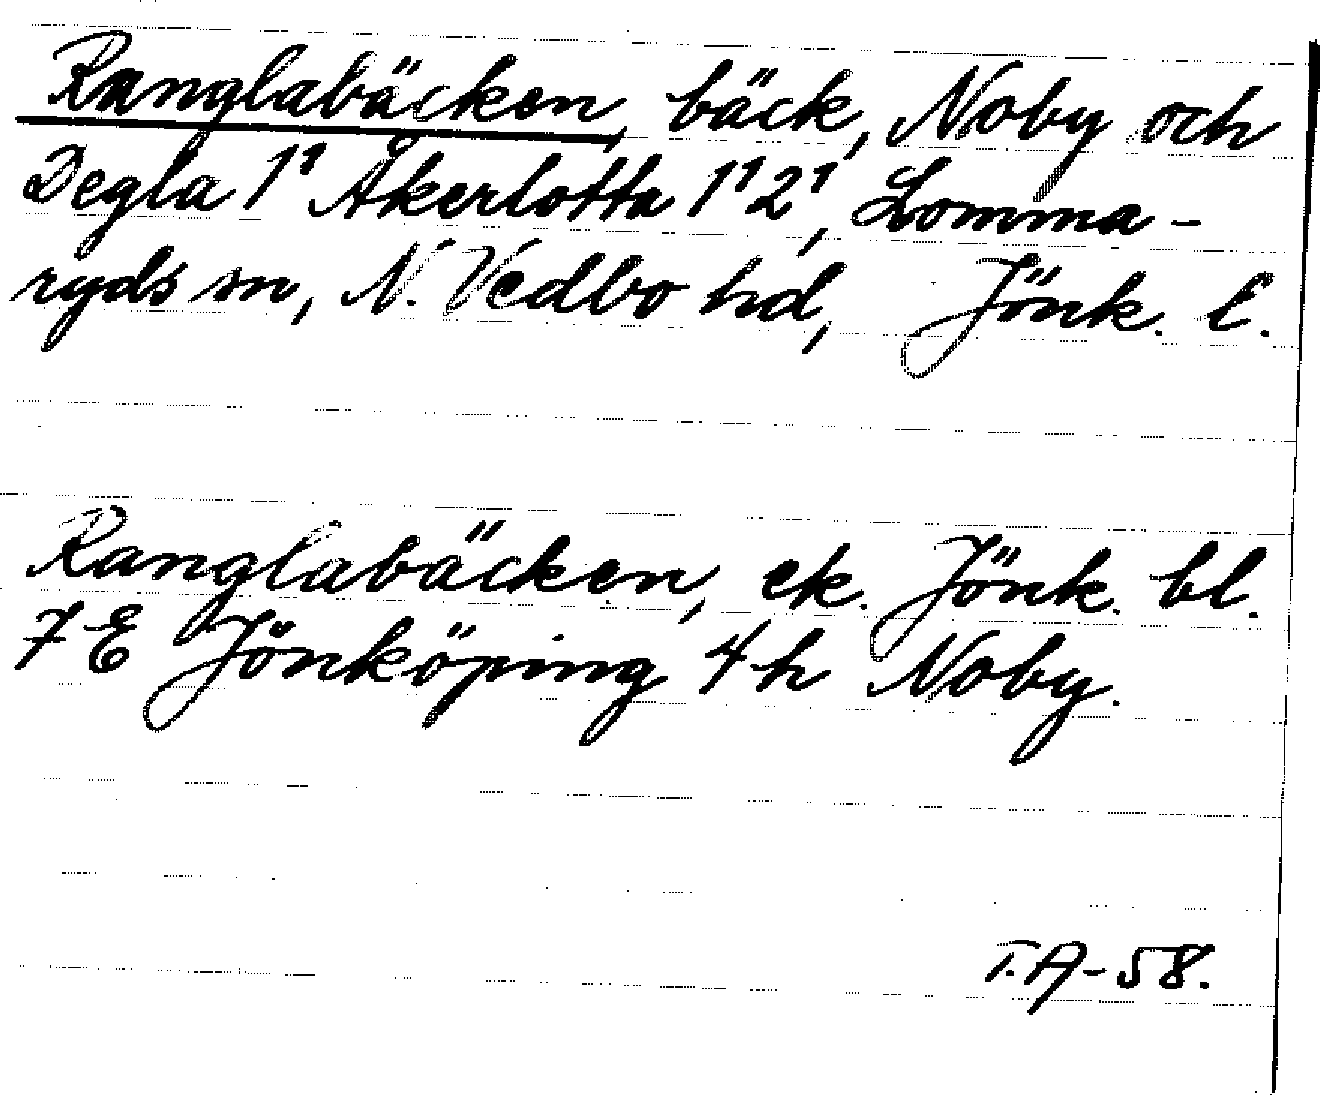 Ranglabäcken, bäck, Noby och
Degla 1¹ Åkerlotta 1¹2¹, Lomma-
ryds sn, N. Vedbo hd, Jönk. l.
Ranglabäcken, ek. Jönk. bl.
7E Jönköping 4h Noby.
T.A-58.